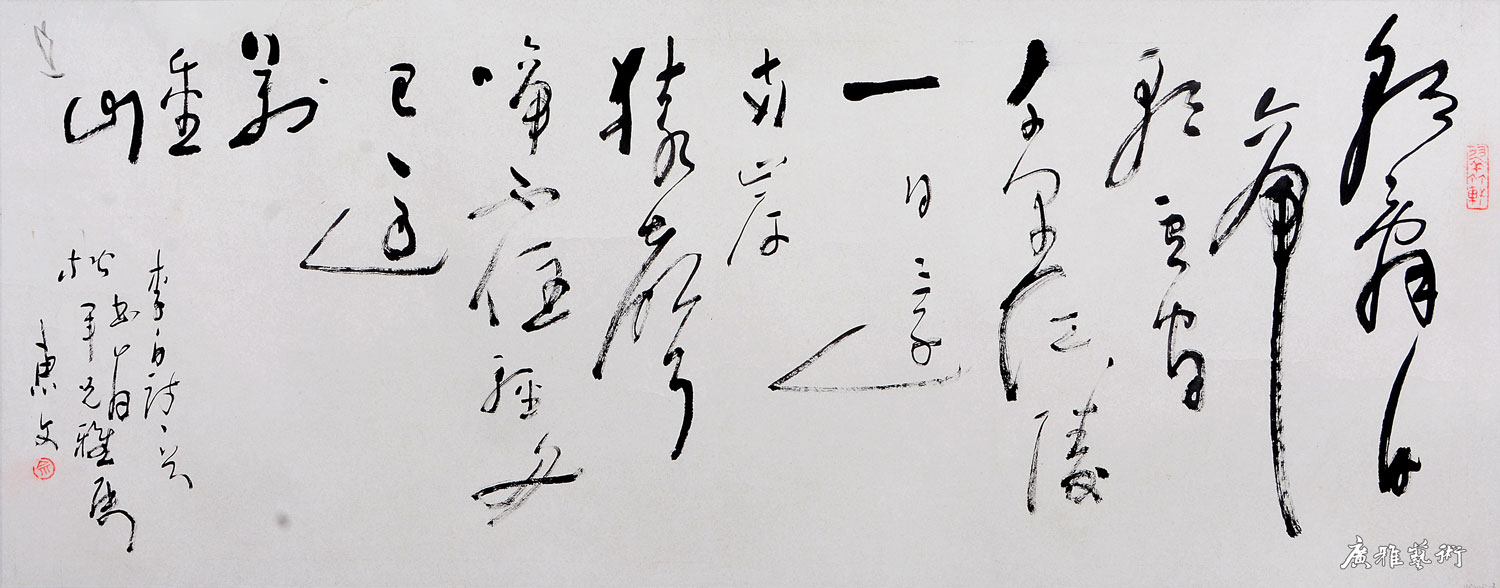 朝辭白
帝
彩雲間
千里江陵
一日還
兩岸
猿聲
啼不住輕舟
已過
萬
重
山
李白詩
兄雅屬
廣雅藝術